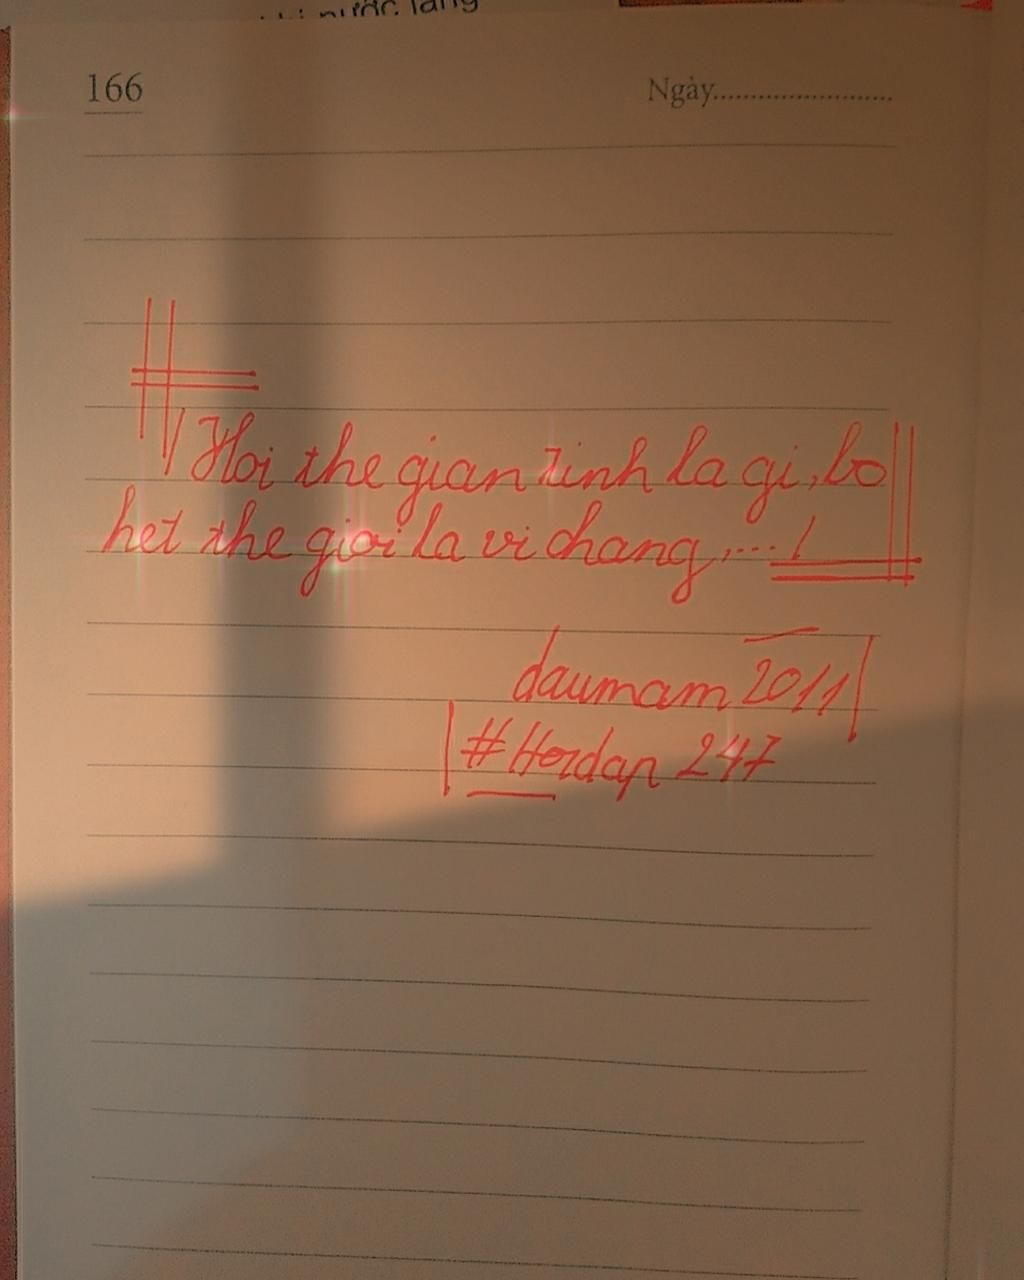 nước lãng
166 Ngày........................
Hoi the gian tinh la gi, bo
het the gioi la vi chang,...!
daumam 2011
#Hordap 247